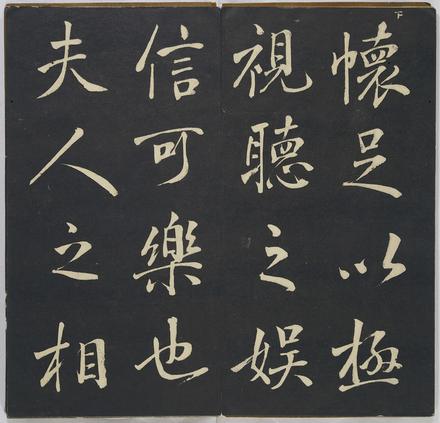 懷足以極
視聽之娱
信可樂也
夫人之相
下